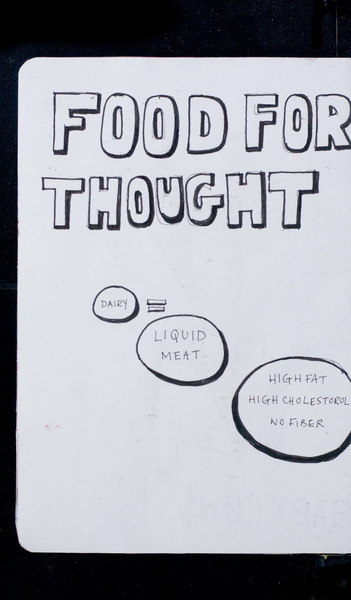 FOOD FOR
THOUGHT
DAIRY =
LIQUID
MEAT
HIGH FAT
HIGH CHOLESTOROL
NO FIBER